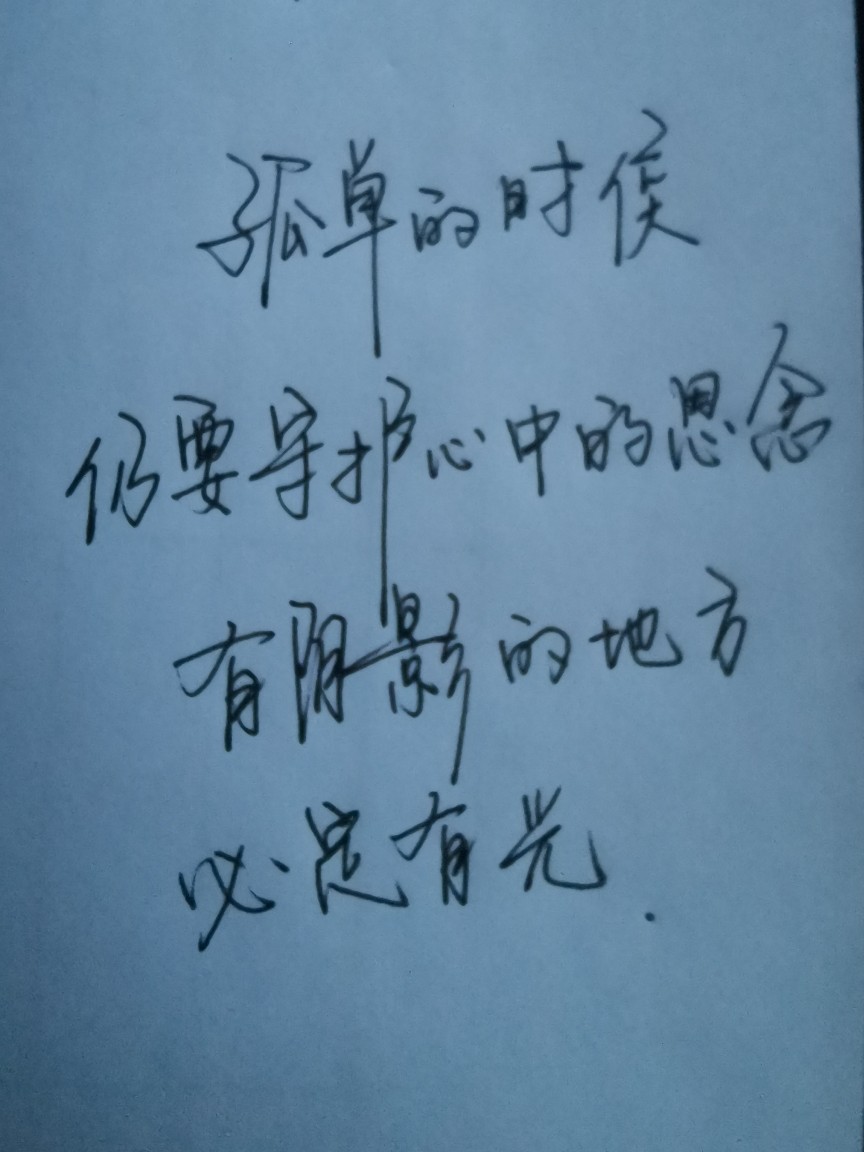 孤单的时候
仍要守护心中的思念
有阴影的地方
必定有光.